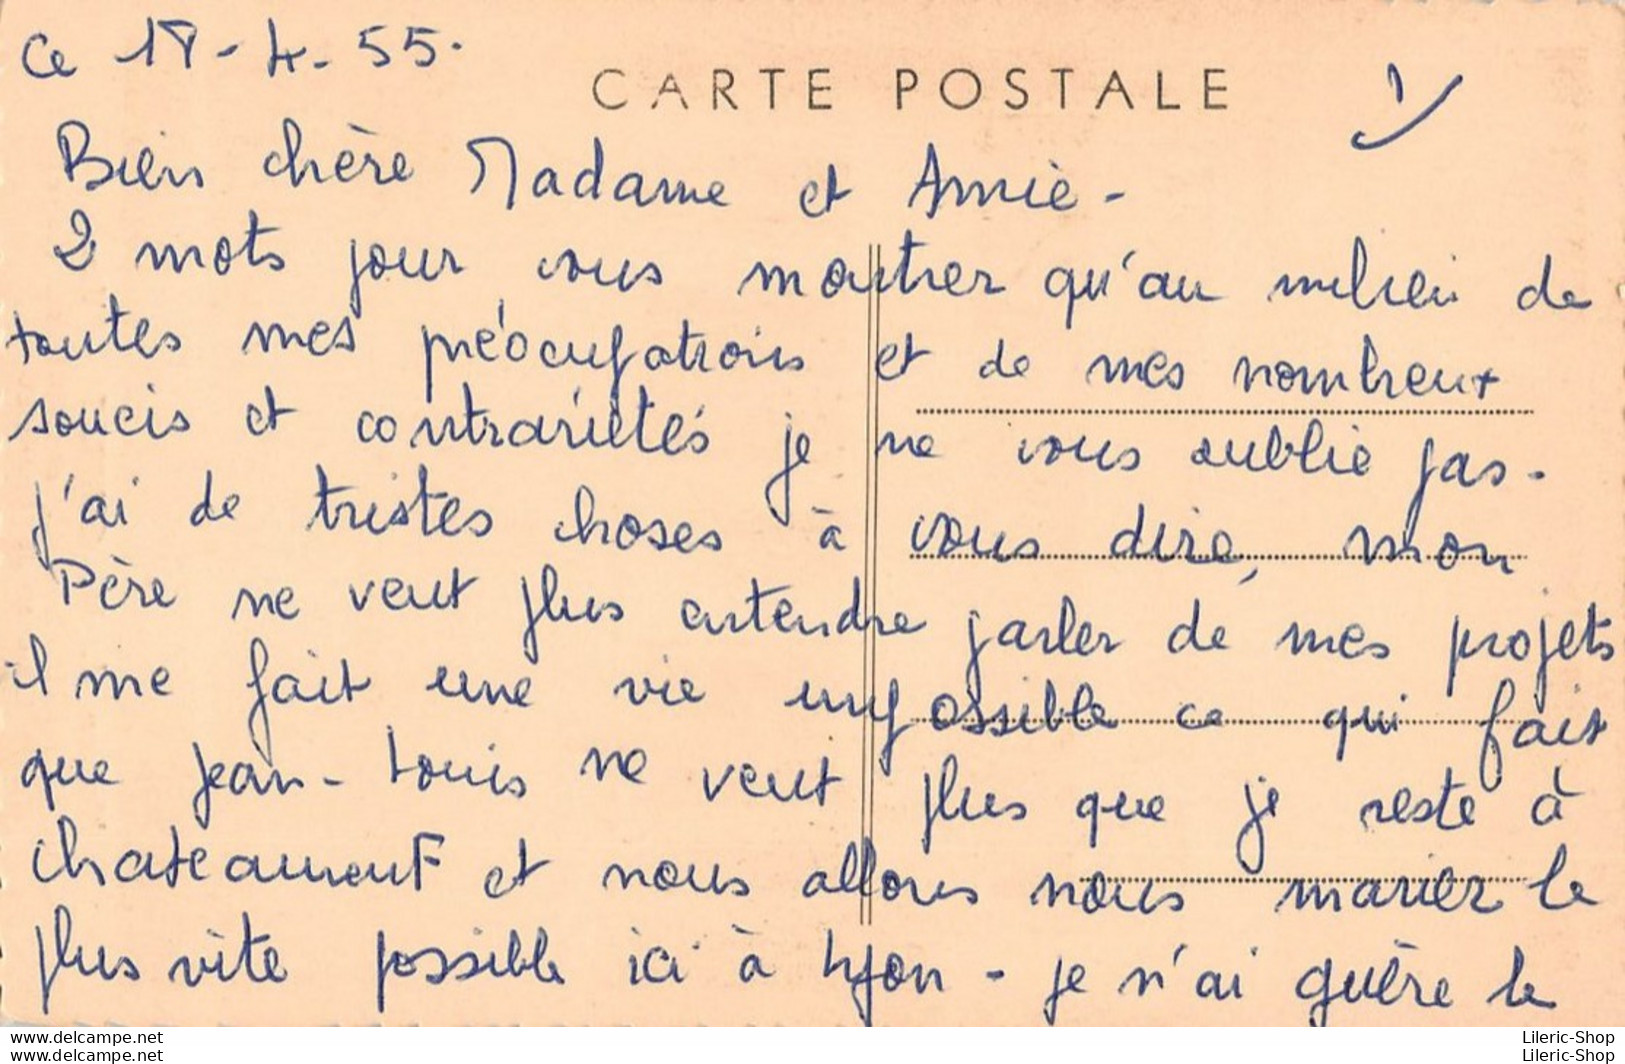 ce 18-4-55.
CARTE POSTALE
1)
Bien chère Madame et Amie -
2 mots pour vous montrer qu'au milieu de
toutes mes préocupations et de mes nombreux
soucis et contrariétés je ne vous oublie pas.
J'ai de tristes choses à vous dire, mon
Père ne veut plus entendre parler de mes projets
il me fait une vie impossible ce qui fait
que Jean-Louis ne veut plus que je reste à
Chateauneuf et nous allons nous marier le
plus vite possible ici à Lyon - je n'ai guère le
www.delcampe.net Lileric-Shop
www.delcampe.net Lileric-Shop